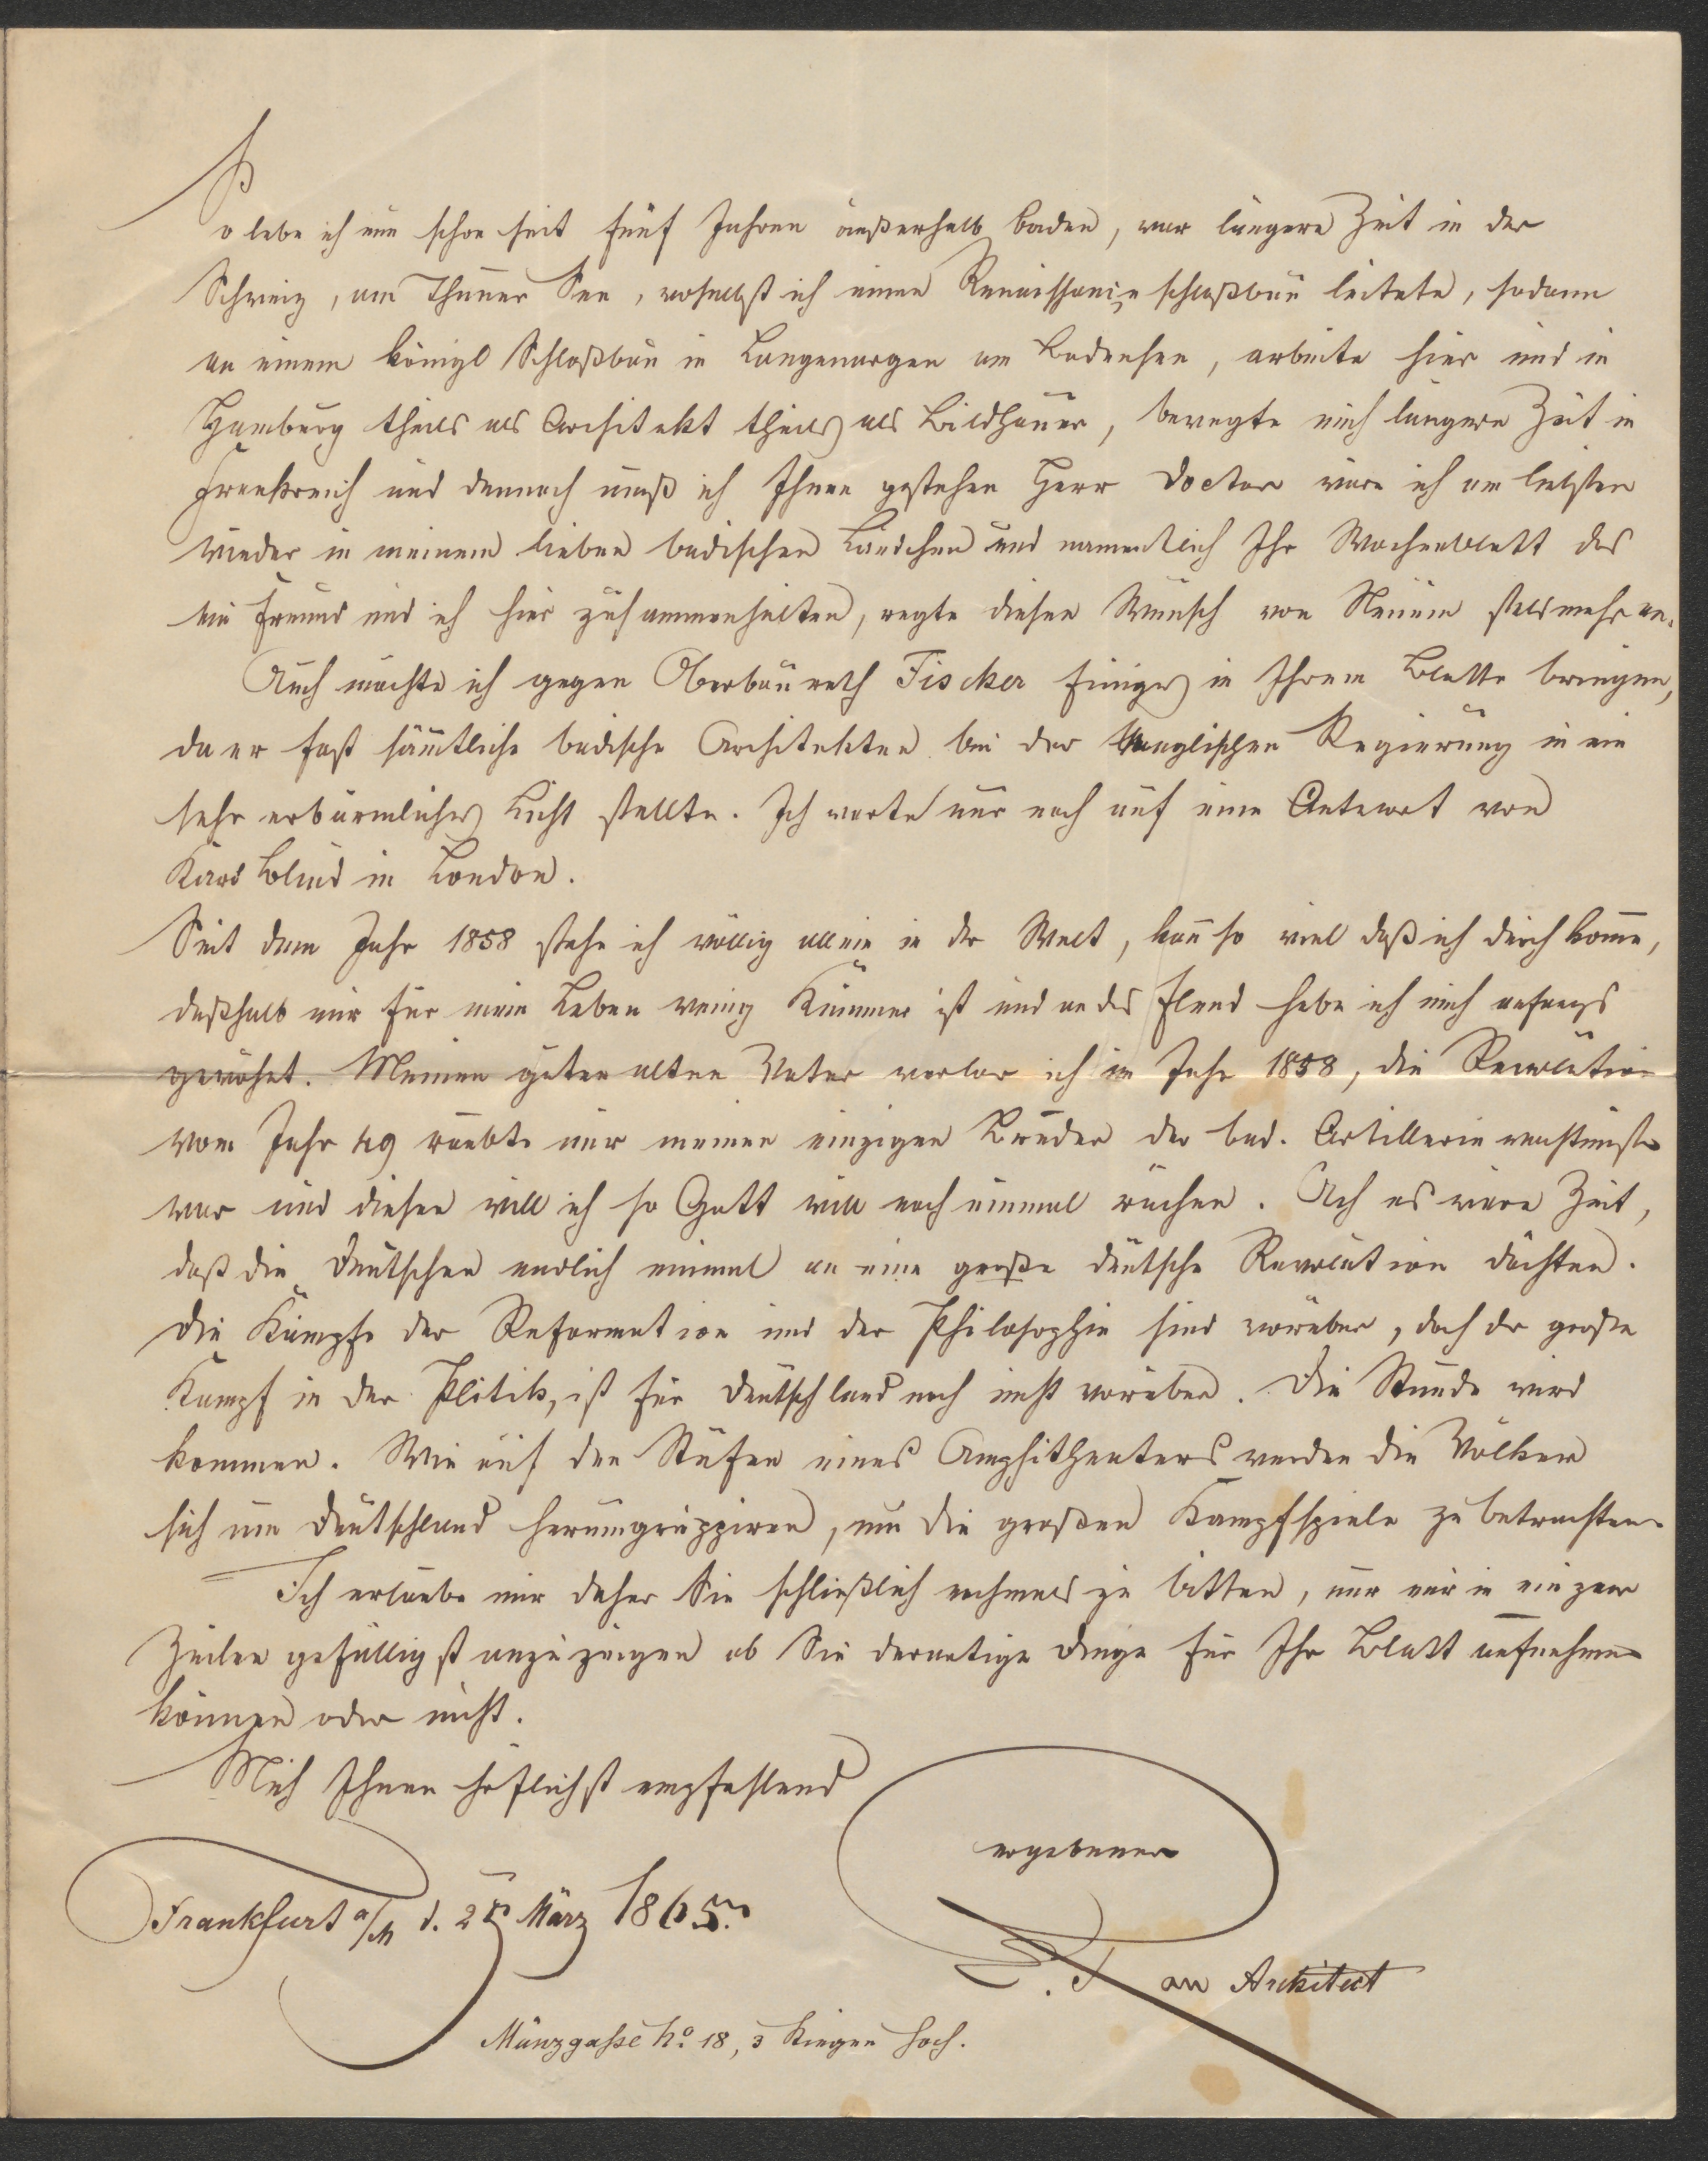 So lebe ich nun schon seit fünf Jahren außerhalb Baden, war längere Zeit in der
Schweiz, am Thuner See, woselbst ich einen Renaissance schloßbau leitete, sodann
an einem königl Schloßbau in Langenargen am Bodensee, arbeite hier und in
Homburg theils als Architekt theils als Bildhauer, bewegte mich längere Zeit in
Frankreich und dennoch muß ich Ihnen gestehen Herr Doctor wäre ich am liebsten
wieder in meinem lieben badischen Ländchen und namentlich Ihr Wochenblatt das
ein Freund und ich hier zusammenhalten, regte diesen Wunsch von Neuem stets mehr an.
Auch möchte ich gegen Oberbaurath Fischer Einiges in Ihrem Blatte bringen,
da er fast sämtliche badische Architekten bei der englischen Regierung in ein
sehr erbärmliches Licht stellte. Ich warte nur noch auf eine Antwort von
Karl Blind in London.
Seit dem Jahr 1858 stehe ich völlig allein in der Welt, kan so viel daß ich durch kome,
deßhalb mir für mein Leben wenig Kummer ist und an das Elend habe ich mich anfangs
gewöhnt. Meinen guten alten Vater verlor ich im Jahr 1858, die Revolution
vom Jahr 49 raubte mir meinen einzigen Bruder der bad. Artillerie
war und diesen will ich so Gott will noch einmal rächen. Ach es wäre Zeit,
daß die Deutschen endlich einmal an eine große deutsche Revolution dächten.
Die Kämpfe der Reformation und der Philosophie sind vorüber, doch der große
Kampf in der Plitik, ist für Deutschland noch nicht vorüber. Die Stunde wird
kommen. Wie auf den Stufen eines Amphitheaters werden die Völker
sich um Deutschland herumgruppiren, um die großen Kampfspiele zu betrachten.
Ich erlaube mir daher Sie schließlich nochmals zu bitten, nur mir in ein paar
Zeilen gefälligst anzuzeigen ob Sie derartige Dinge für Ihr Blatt aufnehmen
können oder nicht.
Mich Ihnen höflichst empfehlend
ergebener
Frankfurt a/M d. 25 März 1865.
Architect
Münzgasse No 18, 3 Stiegen hoch.